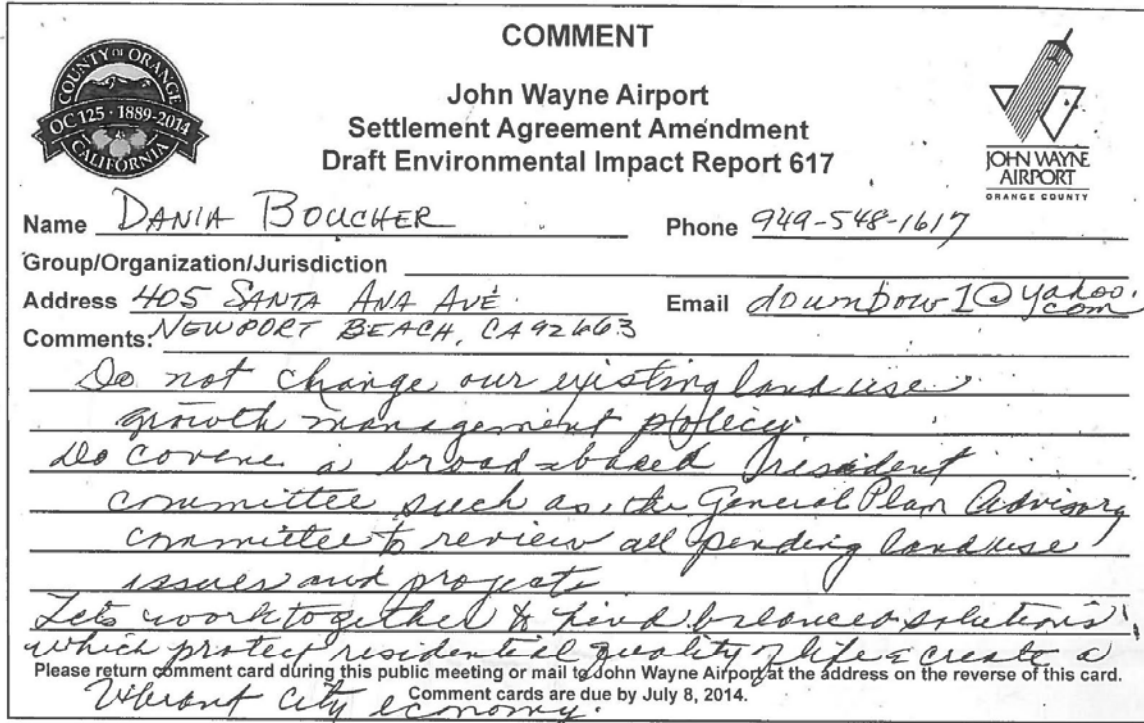 COMMENT
COUNTY OF ORANGE
OC 125 · 1889-2014
CALIFORNIA
John Wayne Airport
Settlement Agreement Amendment
Draft Environmental Impact Report 617
JOHN WAYNE
AIRPORT
ORANGE COUNTY
Name DANIA BOUCHER Phone 949-548-1617
Group/Organization/Jurisdiction
Address 405 SANTA ANA AVE. Email doumbow1@yahoo.com
Comments: NEWPORT BEACH, CA 92663
Do not change our existing land use
growth management policy.
Do covene a broad-based resident
committee such as the General Plan Advisory
committee to review all pending land use
issues and projects
Lets work together to find balanced solutions
which protect residential quality of life & create a
Please return comment card during this public meeting or mail to John Wayne Airport at the address on the reverse of this card.
Vibrant City economy.
Comment cards are due by July 8, 2014.